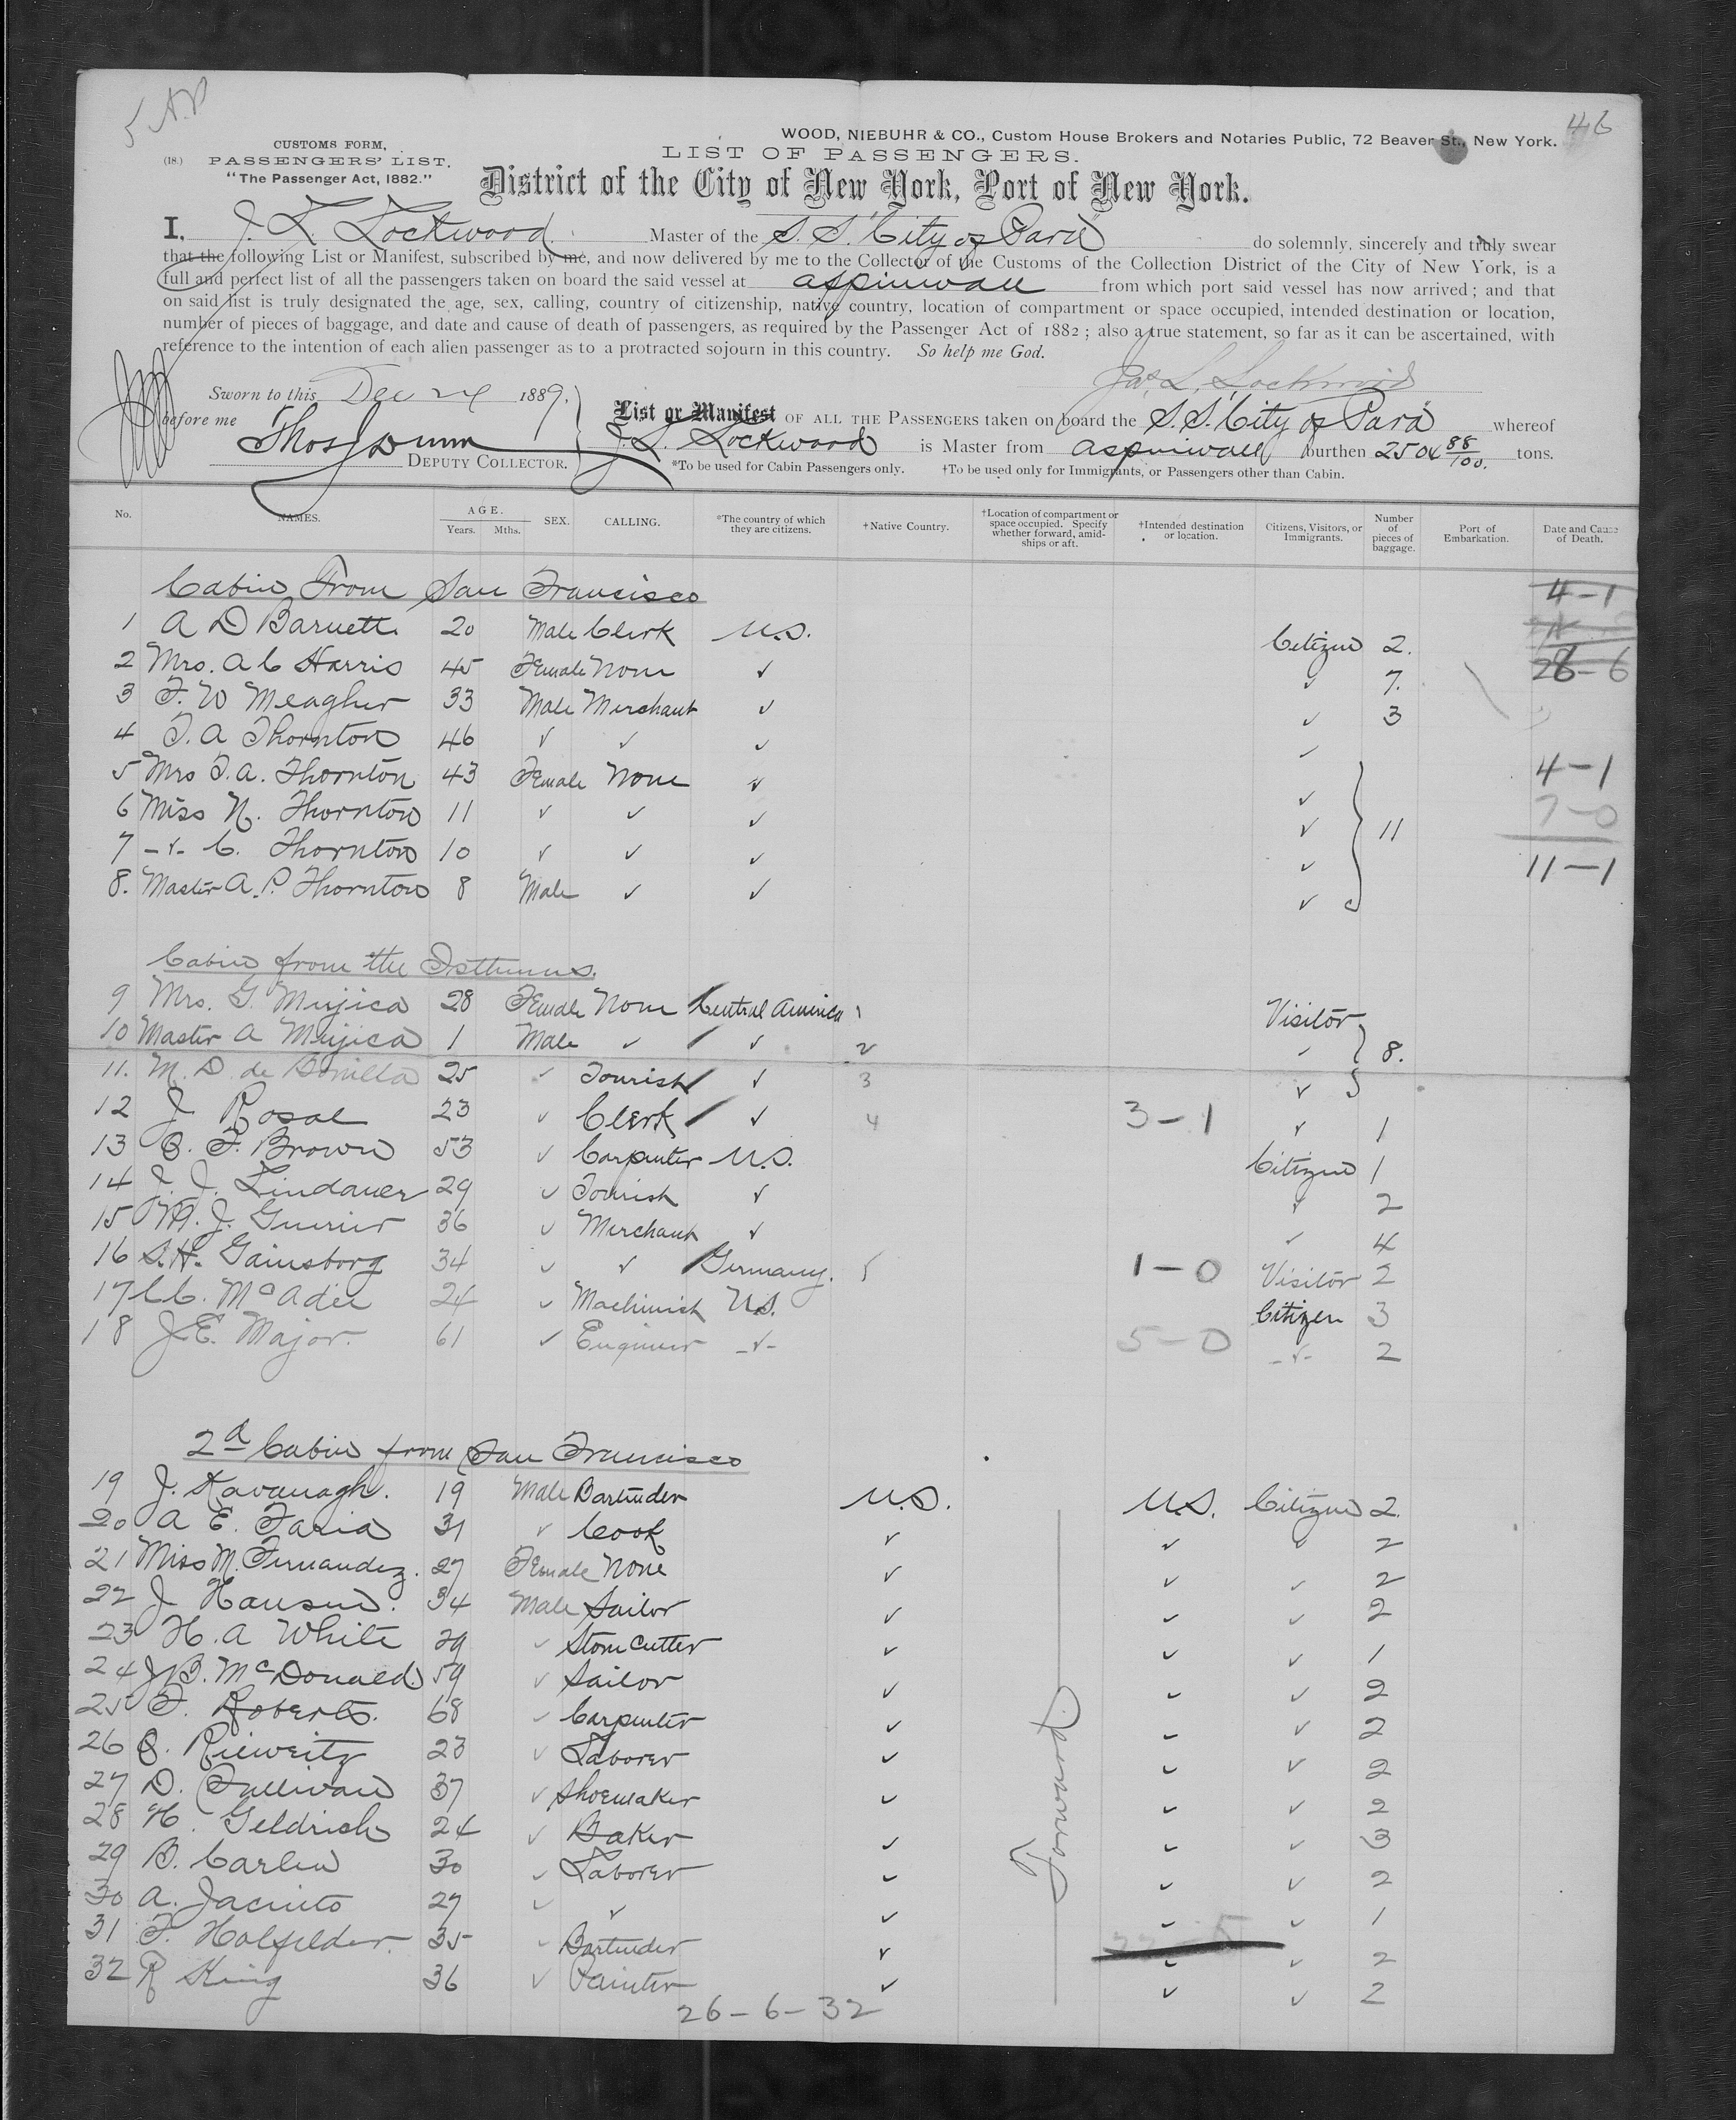 5 A.P
46
WOOD, NIEBUHR & CO., Custom House Brokers and Notaries Public, 72 Beaver St., New York.
CUSTOMS FORM,
(18.) PASSENGERS' LIST.
"The Passenger Act, 1882."
LIST OF PASSENGERS.
District of the City of New York, Port of New York.
I, J. L. Lockwood Master of the S. S. "City of Pará" do solemnly, sincerely and truly swear
that the following List or Manifest, subscribed by me, and now delivered by me to the Collector of the Customs of the Collection District of the City of New York, is a
full and perfect list of all the passengers taken on board the said vessel at Aspinwall from which port said vessel has now arrived; and that
on said list is truly designated the age, sex, calling, country of citizenship, native country, location of compartment or space occupied, intended destination or location,
number of pieces of baggage, and date and cause of death of passengers, as required by the Passenger Act of 1882; also a true statement, so far as it can be ascertained, with
reference to the intention of each alien passenger as to a protracted sojourn in this country. So help me God.
Jas. L. Lockwood
Sworn to this Dec 24 1889.
before me
Thos J Dunn
DEPUTY COLLECTOR.
List or Manifest OF ALL THE PASSENGERS taken on board the S. S. "City of Pará" whereof
J. L. Lockwood is Master from Aspinwall burthen 2504 88/100. tons.
*To be used for Cabin Passengers only. †To be used only for Immigrants, or Passengers other than Cabin.
No. NAMES. AGE. Years. Mths. SEX. CALLING. *The country of which they are citizens. †Native Country. †Location of compartment or space occupied. Specify whether forward, amidships or aft. †Intended destination or location. Citizens, Visitors, or Immigrants. Number of pieces of baggage. Port of Embarkation. Date and Cause of Death.
Cabin From San Francisco 4-1
1 A D Barnett 20 Male Clerk U.S. Citizen 2.
2 Mrs. A C Harris 45 Female None ✓ ✓ 7. 28-6
3 F. W Meagher 33 Male Merchant ✓ ✓ 3
4 T. A Thornton 46 ✓ ✓ ✓ ✓
5 Mrs T. A. Thornton 43 Female None ✓ ✓ 4-1
6 Miss N. Thornton 11 ✓ ✓ ✓ ✓ 11 7-0
7 -✓- C. Thornton 10 ✓ ✓ ✓ ✓ 11-1
8. Master A. P. Thornton 8 Male ✓ ✓ ✓
Cabin from the Isthmus.
9 Mrs. G. Mujica 28 Female None Central America 1 Visitor
10 Master A Mujica 1 Male ✓ ✓ 2 ✓ 8.
11. M. D. de Bonilla 25 ✓ Tourist ✓ 3 ✓
12 J Rosal 23 ✓ Clerk ✓ 4 3-1 ✓ 1
13 O. F. Brown 53 ✓ Carpenter U.S. Citizen 1
14 J. J. Lindauer 29 ✓ Tourist ✓ ✓ 2
15 J. Guerier 36 ✓ Merchant ✓ ✓ 4
16 S. H. Gainsborg 34 ✓ ✓ Germany. 5 1-0 Visitor 2
17 C. McAdie 24 ✓ Machinist U.S. Citizen 3
18 J. E. Major. 61 ✓ Engineer -✓- 5-0 -✓- 2
2d Cabin from San Francisco
19 J. Kavanagh. 19 Male Bartender U.S. U.S. Citizen 2.
20 A E. Faria 31 ✓ Cook ✓ ✓ ✓ 2
21 Miss M. Fernandez. 27 Female None ✓ ✓ ✓ 2
22 J Hansen. 34 Male Sailor ✓ ✓ ✓ 2
23 H. A White 29 ✓ Stone Cutter ✓ ✓ ✓ 1
24 J B. McDonald. 59 ✓ Sailor ✓ ✓ ✓ 2
25 F. Roberts. 68 ✓ Carpenter ✓ ✓ ✓ 2
26 23 ✓ Laborer ✓ ✓ ✓ 2
27 D. Sullivan 37 ✓ Shoemaker ✓ ✓ ✓ 2
28 H. Geldrich 24 ✓ Baker ✓ ✓ ✓ 3
29 B. Carlin 30 ✓ Laborer ✓ ✓ ✓ 2
30 A. Jacinto 27 ✓ ✓ ✓ ✓ ✓ 1
31 F. Holfelder. 35 ✓ Bartender ✓ ✓ ✓ 2
32 R King 36 ✓ Painter ✓ ✓ ✓ 2
Forward.
26-6-32